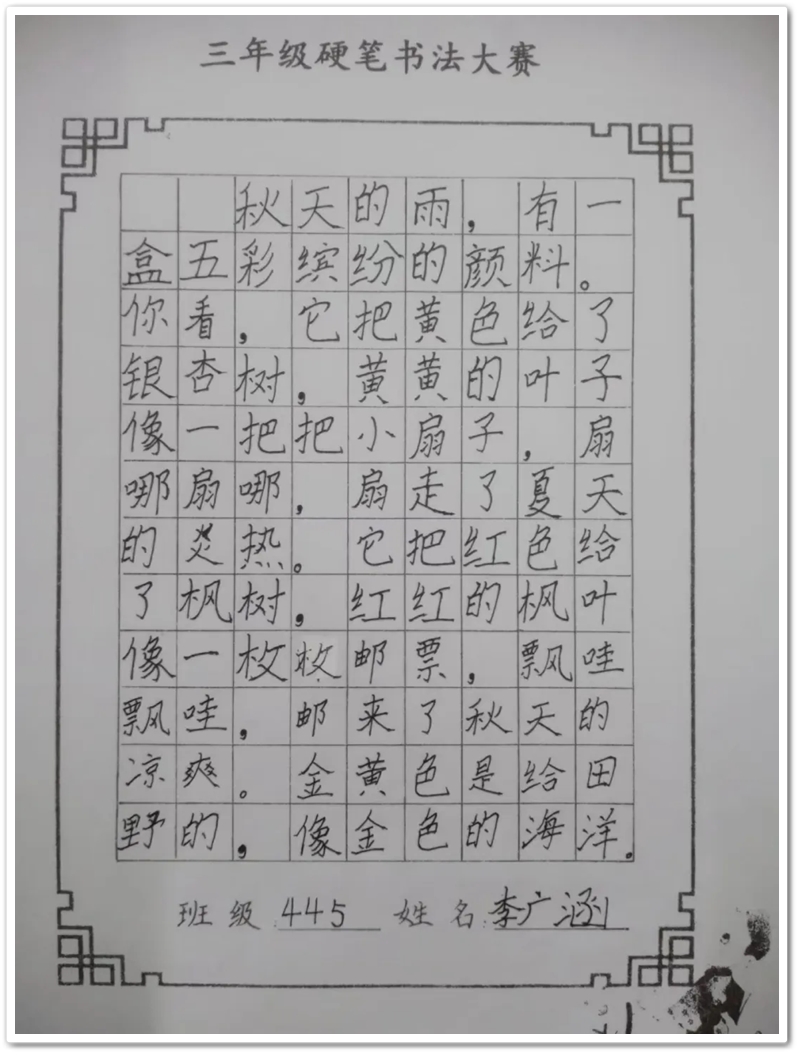 三年级硬笔书法大赛
秋天的雨，有一
盒五彩缤纷的颜料。
你看，它把黄色给了
银杏树，黄黄的叶子
像一把把小扇子，扇
哪扇哪，扇走了夏天
的炎热。它把红色给
了枫树，红红的枫叶
像一枚枚邮票，飘哇
飘哇，邮来了秋天的
凉爽。金黄色是给田
野的，像金色的海洋。
班级 445 姓名 李广涵